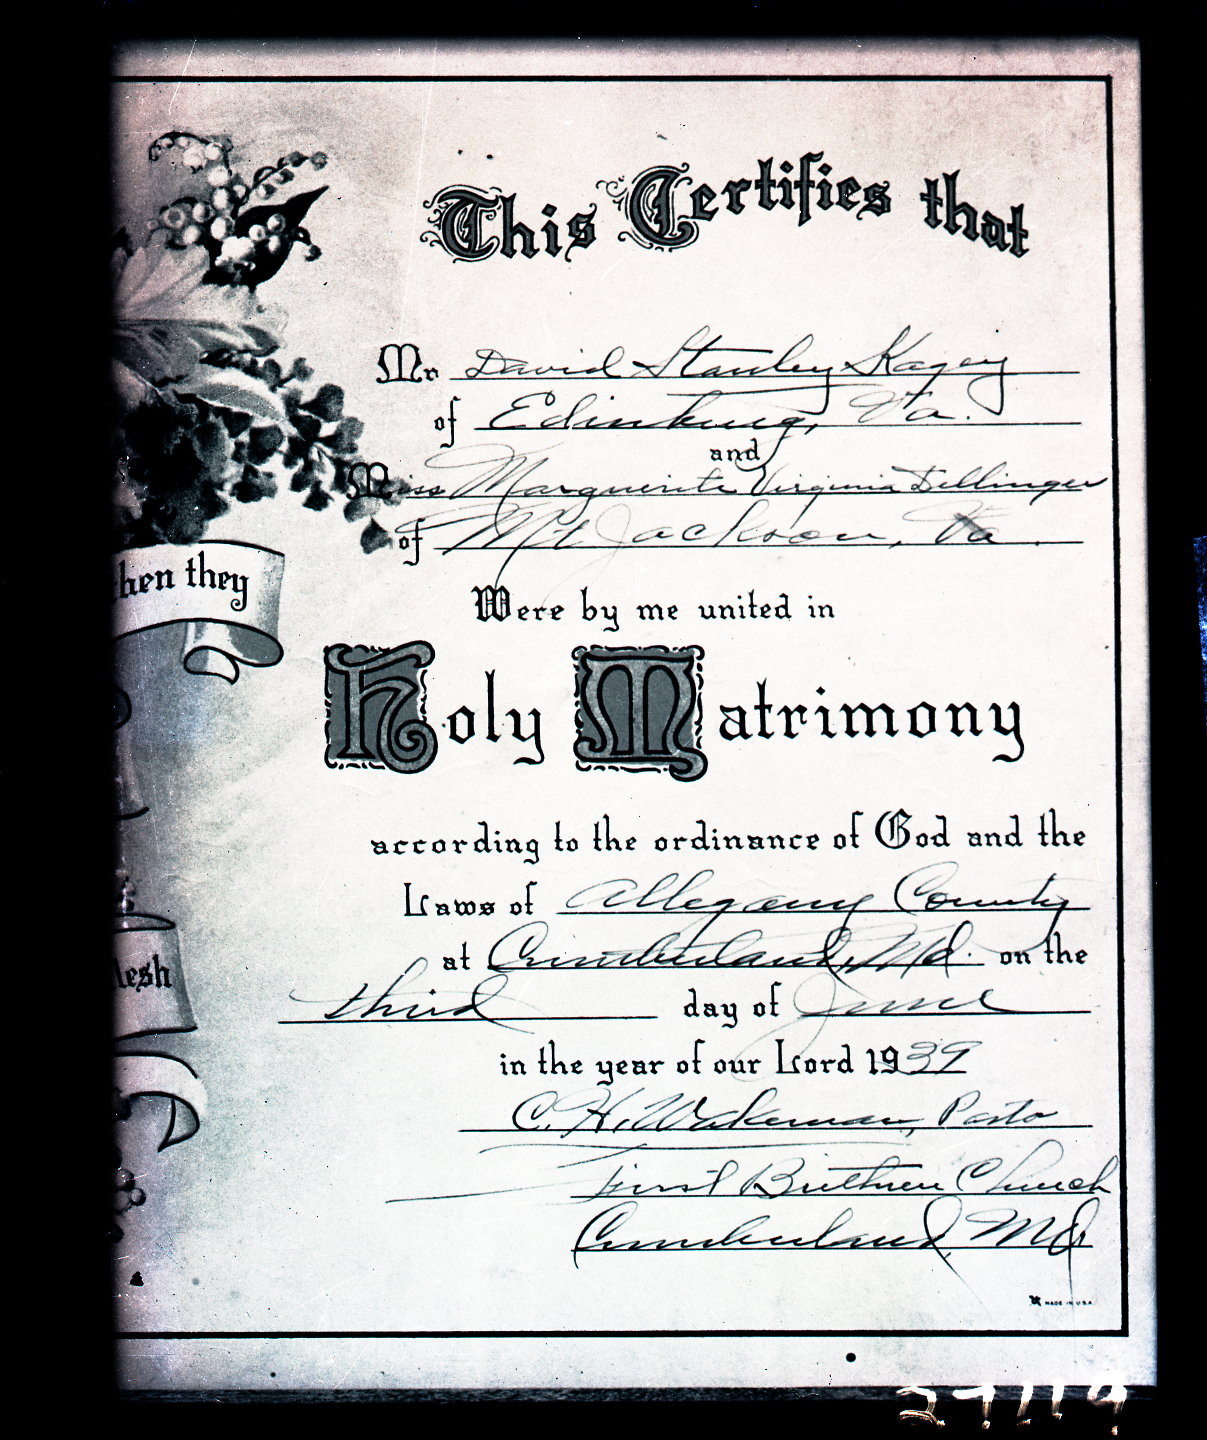 This Certifies that
Mr David Stanley Kagey
of Edinburg, Va.
and
Miss Marguerite Virginia Dellinger
of Mt Jackson, Va.
hen they
Were by me united in
Holy Matrimony
according to the ordinance of God and the
Laws of Allegany County
at Cumberland, Md. on the
lesh
third day of June
in the year of our Lord 1939
C. H. Wakeman, Pastor
First Brethren Church
Cumberland, Md.
MADE IN U.S.A.